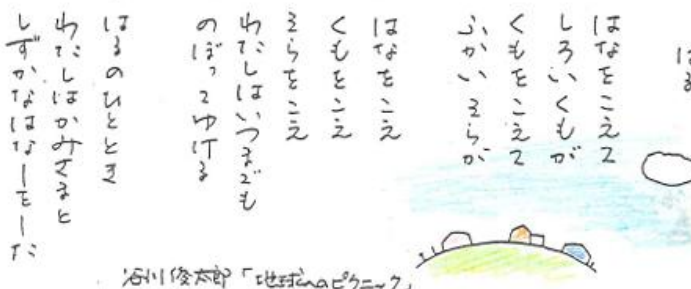 はる
はなをこえて
しろいくもが
くもをこえて
ふかいそらが
はなをこえ
くもをこえ
そらをこえ
わたしはいつまでも
のぼってゆける
はるのひととき
わたしはかみさまと
しずかなはなしをした
谷川俊太郎「地球へのピクニック」